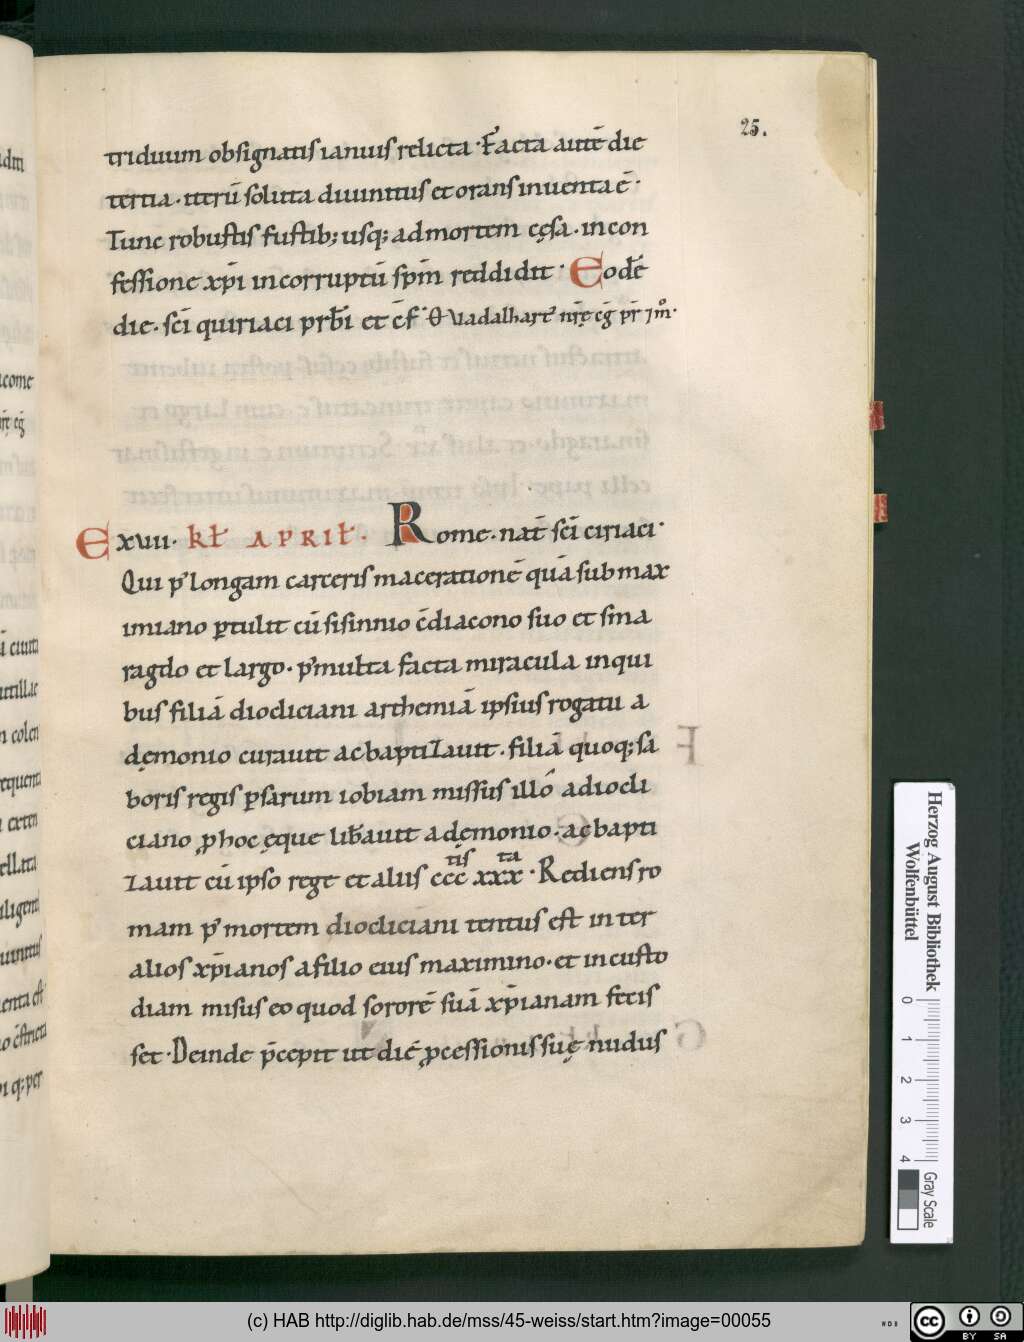 25.
triduum obsignatis ianuis relicta · Facta autē die
tertia · iterū soluta diuinitus et orans inuenta ē ·
Tunc robustis fustib; usq; ad mortem cęsa · in con
fessione xp̄i incorruptū sp̄m reddidit · Eodē
die · sc̄i quiriaci prb̄i et c̄f · Θ Uuadalhart nr̄ę cḡ pr̄ ⁊ m̊ ·
E xvii · kł APRIł · Rome · nat̄ sc̄i ciriaci ·
Qui p᾽ longam carceris macerationē quā sub max
imiano ꝑtulit cū sisinnio c̄diacono suo et sma
ragdo et largo · p᾽ multa facta miracula in qui
bus filiā diocliciani arthemiā ipsius rogatu a
dęmonio curauit ac baptizauit · filiā quoq; sa
boris regis ꝑsarum iobiam missus illo adiocli
ciano ꝓ hoc ęque lib̄auit a dęmonio · ac bapti
zauit cū ipso rege et aliis cccᵗⁱˢ xxxᵗᵃ · Rediens ro
mam p᾽ mortem diocliciani tentus est inter
alios xp̄ianos a filio eius maximino · et in custo
diam misus eo quod sororē suā xp̄ianam fecis
set · Deinde p̄cepit ut diē ꝓcessionis suę nudus
Herzog August Bibliothek
Wolfenbüttel
0 1 2 3 4
Gray Scale
(c) HAB http://diglib.hab.de/mss/45-weiss/start.htm?image=00055
WDB
cc BY SA